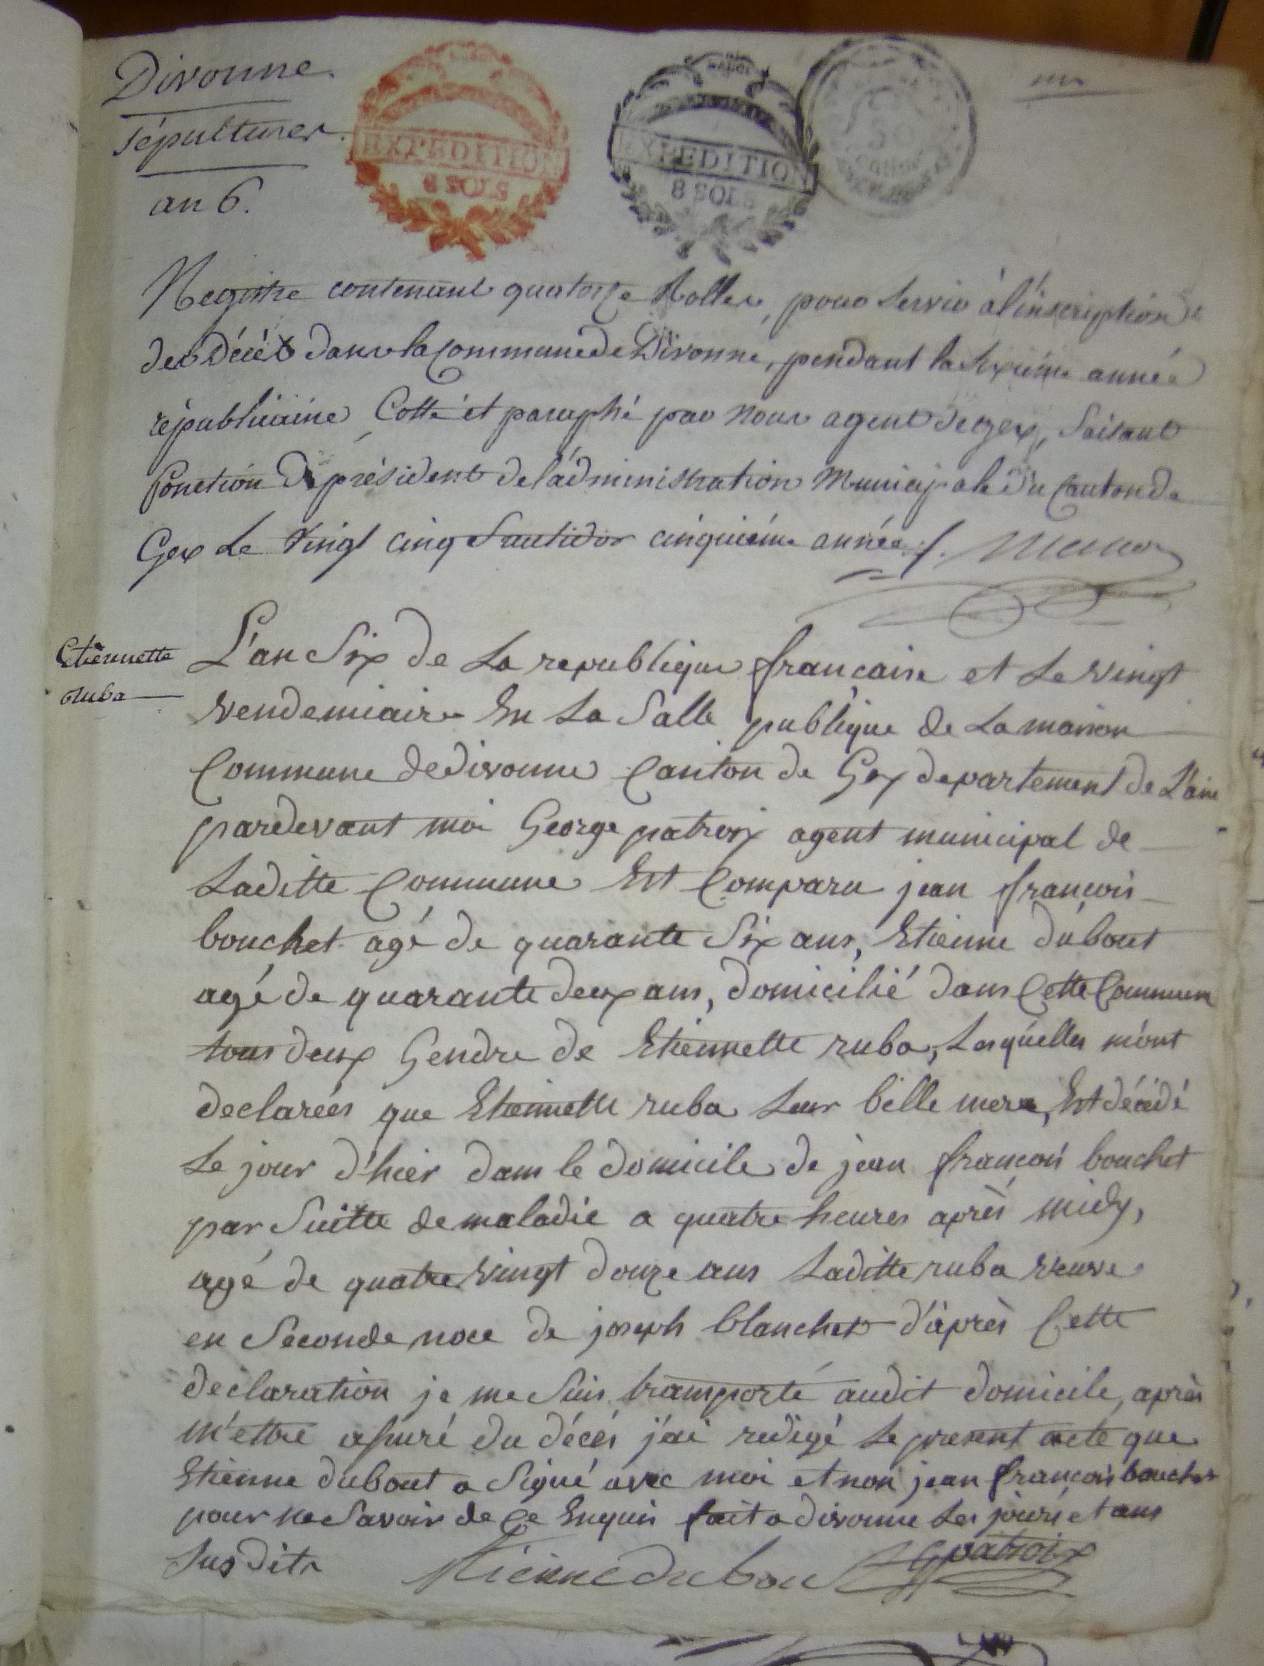 Divonne.
sépultures.
an 6.
EXPEDITION
8 SOLS
EXPEDITION
8 SOLS
Registre contenant quatorze Rolles, pour servir à l'inscription
des Décès dans la Commune de Divonne, pendant la sixième année
républicaine, Cotté et paraphé par nous agent de Gex, faisant
fonction de président de l'administration Municipale du Canton de
Gex le vingt cinq fructidor cinquième année
Etiennette
ruba
L'an Six de La republique francaise et Le vingt
vendemiaire En La Salle publique de La maison
Commune de divonne Canton de Gex departement de L'ain
pardevant moi George patroix agent municipal de
Laditte Commune Est Comparu jean françois
bouchet agé de quarante Six ans, Etienne dubout
agé de quarante deux ans, domicilié dans Cette Commune
tous deux Gendre de Etiennette ruba, Lesquelles m'ont
declarées que Etiennette ruba Leur belle mere, Est décédé
Le jour d'hier dans le domicile de jean françois bouchet
par Suitte de maladie a quatre heures après midy,
agé de quatre vingt douze ans Laditte ruba veuve
en Seconde noce de joseph blanchet d'après Cette
declaration je me Suis transporté audit domicile, après
m'ettre assuré du décés j'ai redigé Le present acte que
Etienne dubout a Signé avec moi et non jean françois bouchet
pour ne Savoir de Ce Enquis fait a divonne Les jours et ans
Susdits Etienne dubout Gpatroix